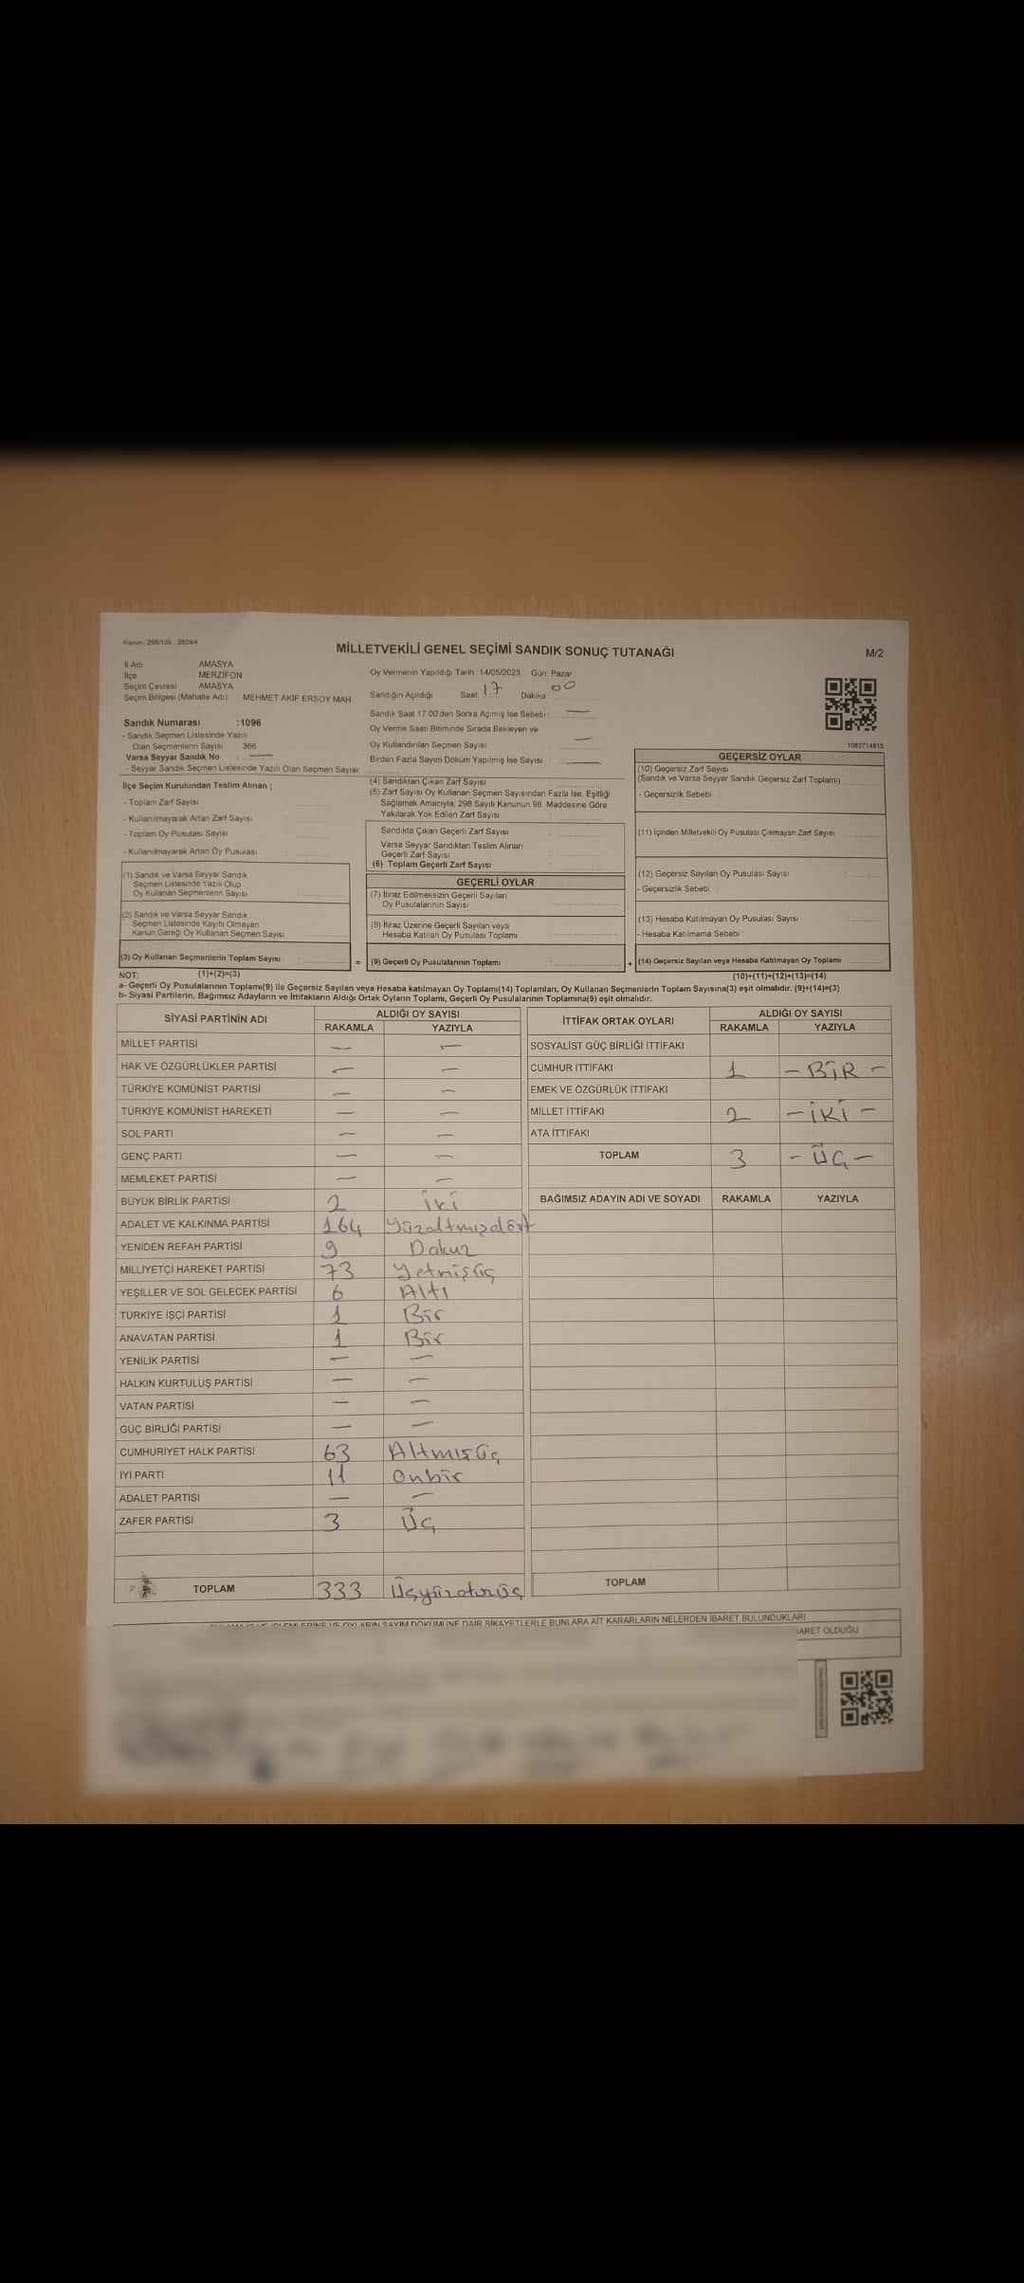 Kanun: 298/105 - 2839/4
MİLLETVEKİLİ GENEL SEÇİMİ SANDIK SONUÇ TUTANAĞI
M/2
İl Adı AMASYA
İlçe MERZİFON
Seçim Çevresi AMASYA
Seçim Bölgesi (Mahalle Adı) MEHMET AKİF ERSOY MAH
Sandık Numarası :1096
- Sandık Seçmen Listesinde Yazılı
Olan Seçmenlerin Sayısı 366
Varsa Seyyar Sandık No : —
- Seyyar Sandık Seçmen Listesinde Yazılı Olan Seçmen Sayısı
Oy Vermenin Yapıldığı Tarih :14/05/2023 Gün: Pazar
Sandığın Açıldığı Saat 17 Dakika 00
Sandık Saat 17:00'den Sonra Açılmış İse Sebebi : —
Oy Verme Saati Bitiminde Sırada Bekleyen ve
Oy Kullandırılan Seçmen Sayısı —
Birden Fazla Sayım Döküm Yapılmış İse Sayısı —
1083714815
İlçe Seçim Kurulundan Teslim Alınan ;
- Toplam Zarf Sayısı
- Kullanılmayarak Artan Zarf Sayısı
- Toplam Oy Pusulası Sayısı
- Kullanılmayarak Artan Oy Pusulası
(1) Sandık ve Varsa Seyyar Sandık
Seçmen Listesinde Yazılı Olup
Oy Kullanan Seçmenlerin Sayısı
(2) Sandık ve Varsa Seyyar Sandık
Seçmen Listesinde Kayıtlı Olmayan
Kanun Gereği Oy Kullanan Seçmen Sayısı
(3) Oy Kullanan Seçmenlerin Toplam Sayısı
(4) Sandıktan Çıkan Zarf Sayısı
(5) Zarf Sayısı Oy Kullanan Seçmen Sayısından Fazla İse, Eşitliği
Sağlamak Amacıyla, 298 Sayılı Kanunun 98. Maddesine Göre
Yakılarak Yok Edilen Zarf Sayısı
Sandıkta Çıkan Geçerli Zarf Sayısı
Varsa Seyyar Sandıktan Teslim Alınan
Geçerli Zarf Sayısı
(6) Toplam Geçerli Zarf Sayısı
GEÇERLİ OYLAR
(7) İtiraz Edilmeksizin Geçerli Sayılan
Oy Pusulalarının Sayısı
(8) İtiraz Üzerine Geçerli Sayılan veya
Hesaba Katılan Oy Pusulası Toplamı
= (9) Geçerli Oy Pusulalarının Toplamı
GEÇERSİZ OYLAR
(10) Geçersiz Zarf Sayısı
(Sandık ve Varsa Seyyar Sandık Geçersiz Zarf Toplamı)
- Geçersizlik Sebebi
(11) İçinden Milletvekili Oy Pusulası Çıkmayan Zarf Sayısı
(12) Geçersiz Sayılan Oy Pusulası Sayısı
- Geçersizlik Sebebi
(13) Hesaba Katılmayan Oy Pusulası Sayısı
- Hesaba Katılmama Sebebi
+ (14) Geçersiz Sayılan veya Hesaba Katılmayan Oy Toplamı
NOT: (1)+(2)=(3)
(10)+(11)+(12)+(13)=(14)
a- Geçerli Oy Pusulalarının Toplamı(9) ile Geçersiz Sayılan veya Hesaba katılmayan Oy Toplamı(14) Toplamları, Oy Kullanan Seçmenlerin Toplam Sayısına(3) eşit olmalıdır. (9)+(14)=(3)
b- Siyasi Partilerin, Bağımsız Adayların ve İttifakların Aldığı Ortak Oyların Toplamı, Geçerli Oy Pusulalarının Toplamına(9) eşit olmalıdır.
SİYASİ PARTİNİN ADI ALDIĞI OY SAYISI
RAKAMLA YAZIYLA
MİLLET PARTİSİ — —
HAK VE ÖZGÜRLÜKLER PARTİSİ — —
TÜRKİYE KOMÜNİST PARTİSİ — —
TÜRKİYE KOMÜNİST HAREKETİ — —
SOL PARTİ — —
GENÇ PARTİ — —
MEMLEKET PARTİSİ — —
BÜYÜK BİRLİK PARTİSİ 2 İki
ADALET VE KALKINMA PARTİSİ 164 Yüzaltmışdört
YENİDEN REFAH PARTİSİ 9 Dokuz
MİLLİYETÇİ HAREKET PARTİSİ 73 Yetmişüç
YEŞİLLER VE SOL GELECEK PARTİSİ 6 Altı
TÜRKİYE İŞÇİ PARTİSİ 1 Bir
ANAVATAN PARTİSİ 1 Bir
YENİLİK PARTİSİ — —
HALKIN KURTULUŞ PARTİSİ — —
VATAN PARTİSİ — —
GÜÇ BİRLİĞİ PARTİSİ — —
CUMHURİYET HALK PARTİSİ 63 Altmışüç
İYİ PARTİ 11 Onbir
ADALET PARTİSİ — —
ZAFER PARTİSİ 3 Üç
TOPLAM 333 Üçyüzotuzüç
İTTİFAK ORTAK OYLARI ALDIĞI OY SAYISI
RAKAMLA YAZIYLA
SOSYALİST GÜÇ BİRLİĞİ İTTİFAKI
CUMHUR İTTİFAKI 1 - BİR -
EMEK VE ÖZGÜRLÜK İTTİFAKI
MİLLET İTTİFAKI 2 - İKİ -
ATA İTTİFAKI
TOPLAM 3 - ÜÇ -
BAĞIMSIZ ADAYIN ADI VE SOYADI RAKAMLA YAZIYLA
TOPLAM
OYLARIN SAYIM DÖKÜMÜNE DAİR ŞİKAYETLERLE BUNLARA AİT KARARLARIN NELERDEN İBARET BULUNDUKLARI
OLDUĞU